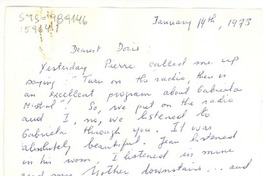 January 14th, 1973
Dearest Doris:
Yesterday Pierre called me up
saying "Turn on the radio, there is
an excellent program about Gabriela
Mistral". So, we put on the radio
and I, no, we listened to
Gabriela through you. It was
absolutely beautiful. Jean listened
in his room, I listened in mine
and my Mother downstairs... and